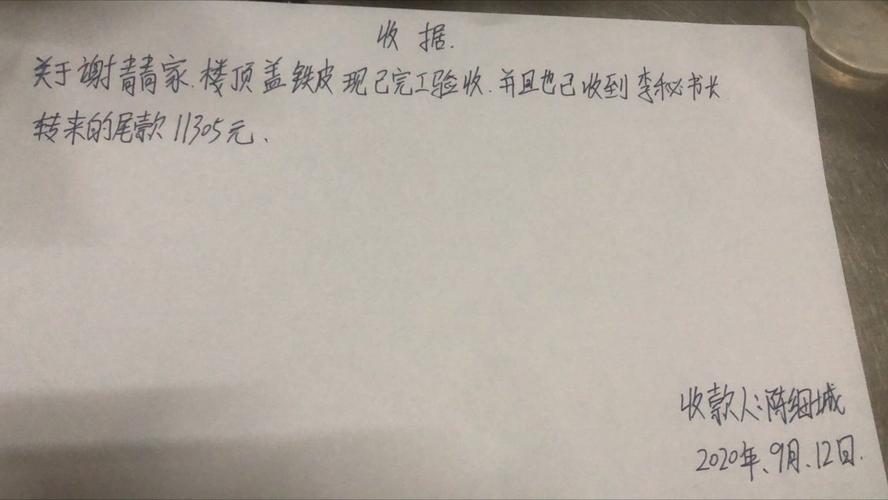 收据.
关于谢青青家.楼顶盖铁皮现已完工验收.并且也已收到李秘书长
转来的尾款11305元、
收款人:陈细城
2020年、9月、12日.